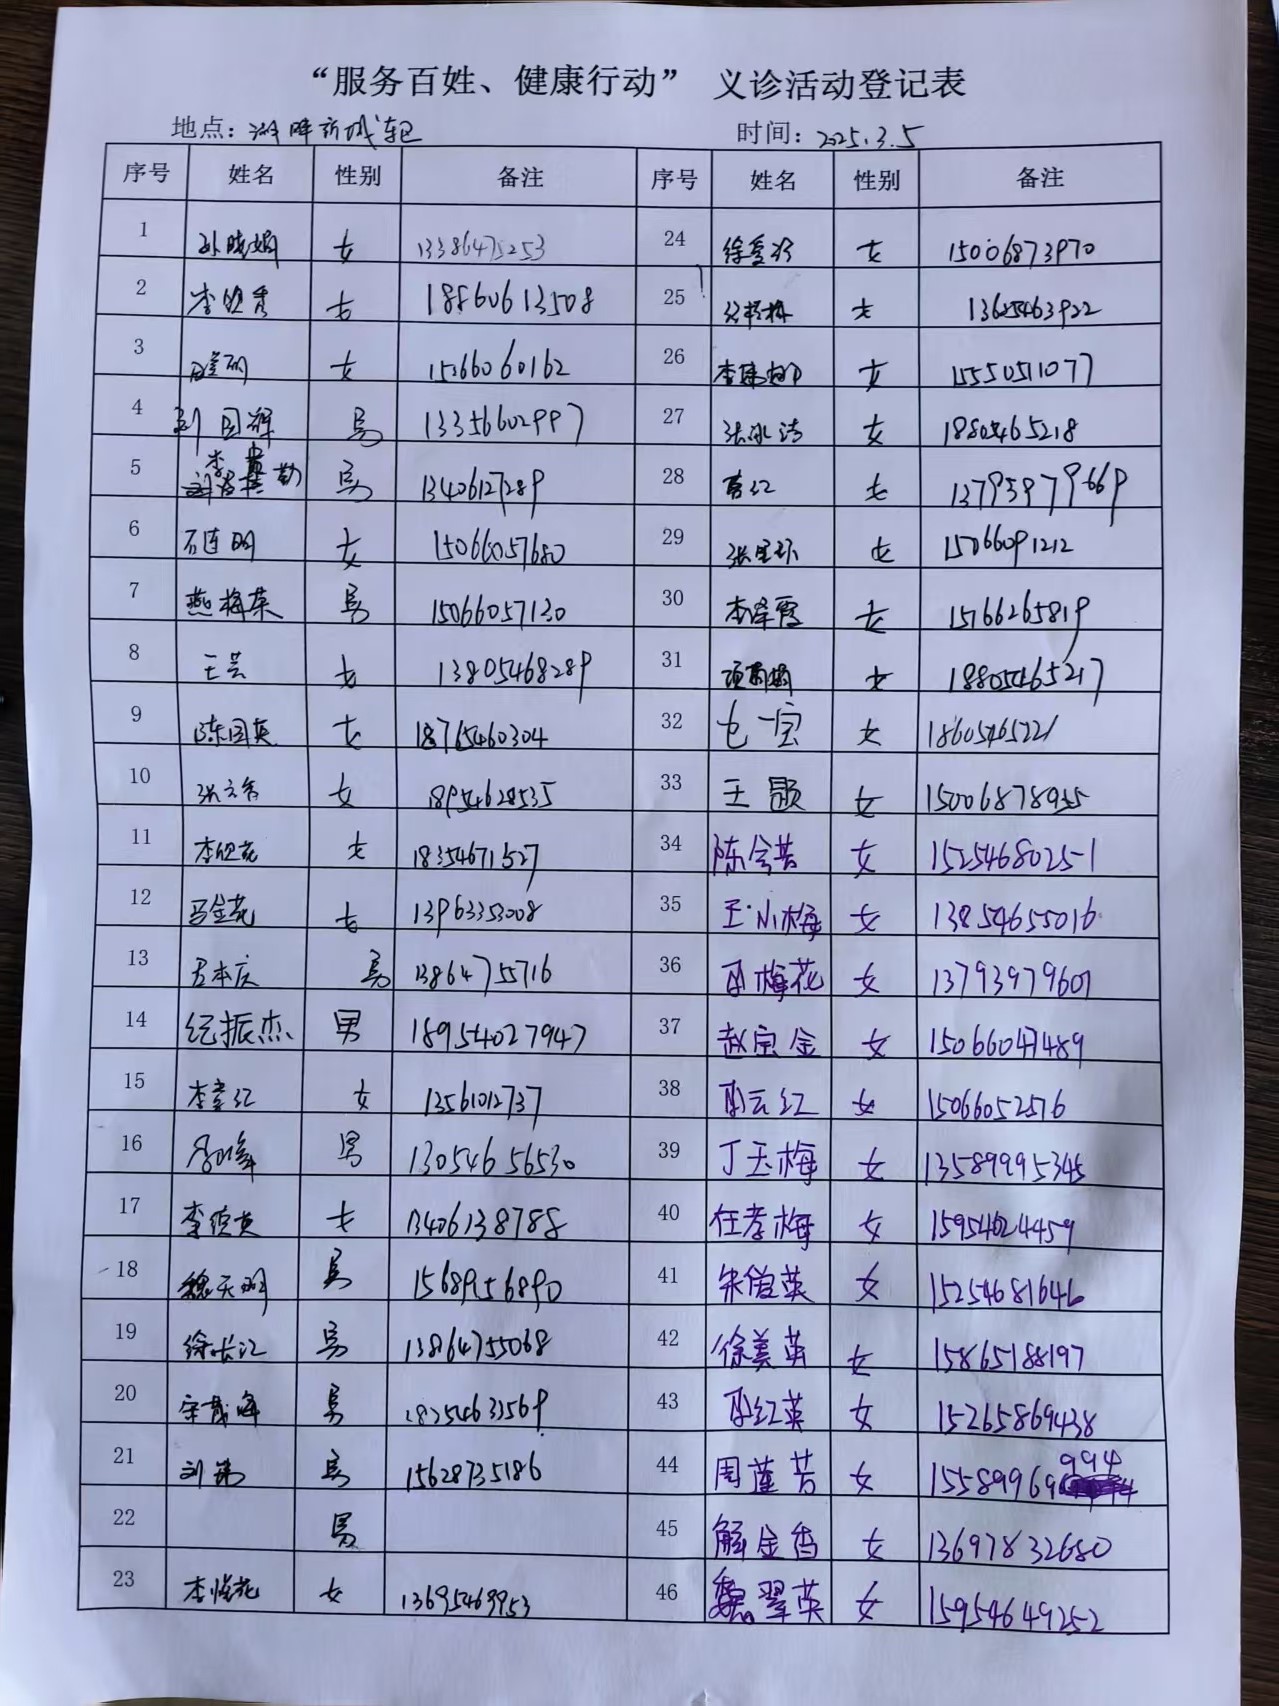 “服务百姓、健康行动” 义诊活动登记表
地点：湖畔新城 时间：2025.3.5
序号 姓名 性别 备注 序号 姓名 性别 备注
1 孙晓娟 女 13386475253 24 徐爱珍 女 15006873970
2 李 秀 女 18860613508 25 女 13625463922
3 女 15266060162 26 李 女 15550511077
4 刘国辉 男 13356602997 27 张冰洁 女 18805465218
5 李 勤 男 13406127289 28 红 女 13793979669
6 石连明 女 15066057680 29 张 女 15066091212
7 燕梅荣 男 15066057130 30 李泽霞 女 15166265819
8 王芸 女 13805468289 31 女 18805465217
9 陈国英 女 18765460304 32 一宝 女 18605465221
10 张 秀 女 18954628535 33 王 女 15006878955
11 李 花 女 18354671527 34 陈会芸 女 15254680251
12 马金花 女 13963353008 35 王小梅 女 13854655016
13 本庆 男 13864755716 36 梅花 女 13793979601
14 纪振杰 男 18954027947 37 赵宝金 女 15066047489
15 李 红 女 13561012737 38 云红 女 15066052576
16 峰 男 13054656530 39 丁玉梅 女 13589995345
17 李 英 女 13406138788 40 任孝梅 女 15954624459
18 魏天明 男 15689256890 41 朱爱英 女 15254681646
19 徐长江 男 13864755068 42 徐美英 女 15865188197
20 宋茂峰 男 18254632569 43 红英 女 15265869438
21 刘 男 15628735186 44 周莲芳 女 15589969994
22 男 45 解金香 女 13697832680
23 李 花 女 13695469953 46 魏翠英 女 15954649252